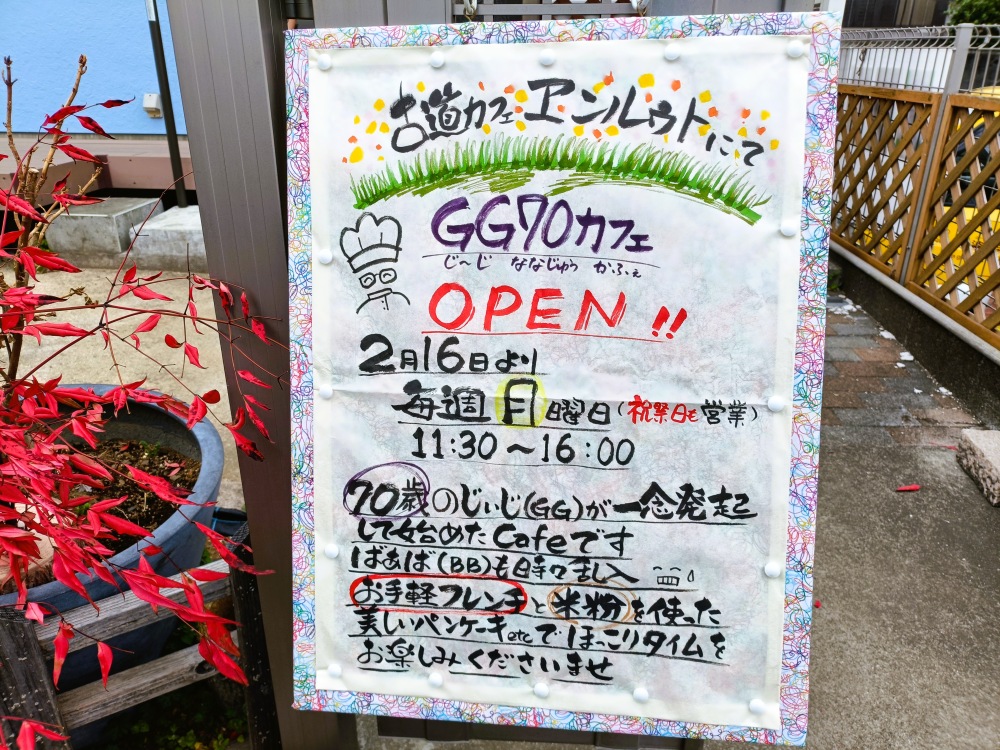 古道カフェ ヱンルゥトにて
GG70カフェ
じ〜じ ななじゅう かふぇ
OPEN!!
2月16日より
毎週月曜日(祝祭日も営業)
11:30〜16:00
70歳のじぃじ(GG)が一念発起
して始めたCafeです
ばぁば(BB)も時々乱入
お手軽フレンチと米粉を使った
美しいパンケーキetcでほっこりタイムを
お楽しみくださいませ